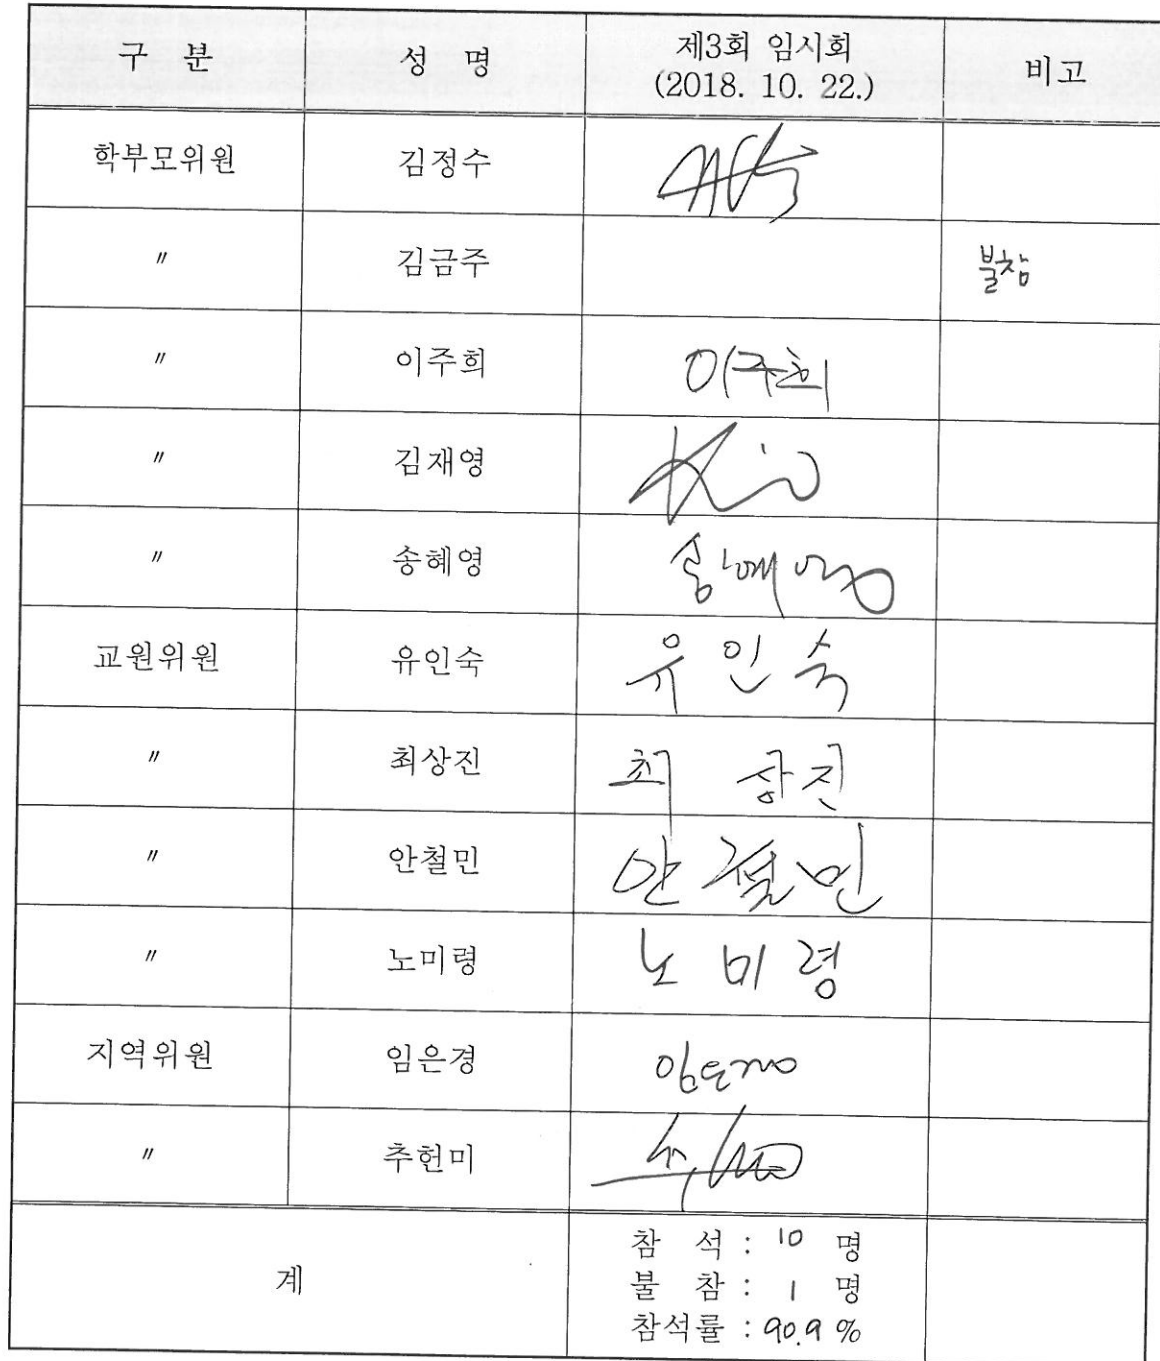 구 분 성 명 제3회 임시회 (2018. 10. 22.) 비고
학부모위원 김정수
〃 김금주 불참
〃 이주희 이주희
〃 김재영
〃 송혜영 송혜영
교원위원 유인숙 유인숙
〃 최상진 최상진
〃 안철민 안철민
〃 노미령 노미령
지역위원 임은경 임은경
〃 추헌미
계 참 석 : 10 명
불 참 : 1 명
참석률 : 90.9 %